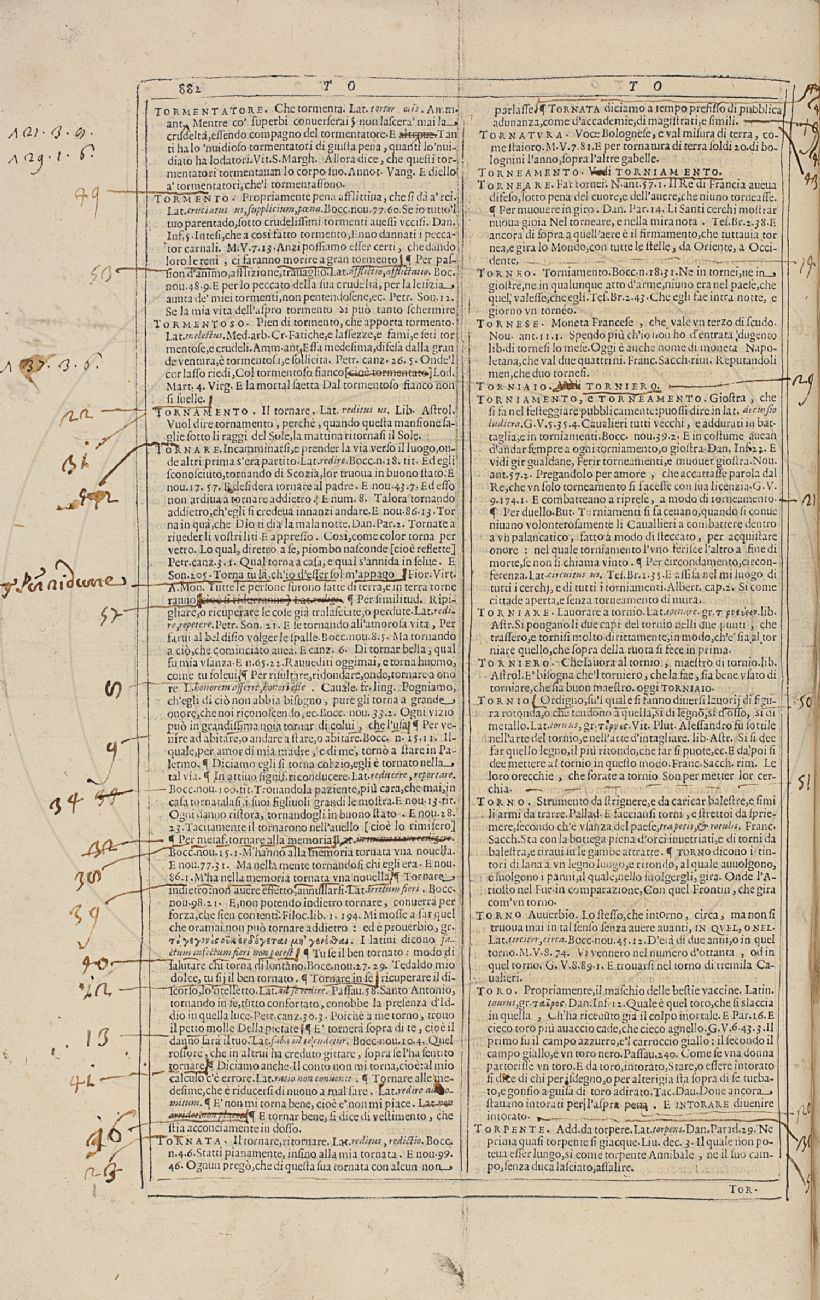 882 T O T O
TORMENTATORE. Che tormenta. Lat. tortor oris. Am.m.
ant. Mentre co' superbi conuerserai non lascera' mai la
crudeltà, essendo compagno del tormentatore. E altroue. Tan
ti ha lo 'nuidioso tormentatori di giusta pena, quanti lo 'nui-
diato ha lodatori. Vit. S. Margh. Allora dice, che questi tor-
mentatori tormentauan lo corpo suo. Annot. Vang. E diello
a' tormentatori, che'l tormentassono.
TORMENTO. Propriamente pena afflittiua, che si dà a' rei.
Lat. cruciatus us, supplicium, poena. Bocc. nou. 77. 60. Se io tutto 'l
tuo parentado, sotto crudelissimi tormenti auessi vccisi. Dan.
Inf. 5. Intesi, che a così fatto tormento, Enno dannati i pecca-
tor carnali. M.V. 7. 13. Anzi possiamo esser certi, che dando
loro le reni, ci faranno morire a gran tormento. ¶ Per pas-
sion d'animo, afflizione, trauaglio. Lat. afflictio, afflictatio. Bocc.
nou. 48. 9. E per lo peccato della sua crudeltà, per la letizia
auuta de' miei tormenti, non pentendosene, ec. Petr. Son. 12.
Se la mia vita dell'aspro tormento Si può tanto schermire
TORMENTOSO. Pien di tormento, che apporta tormento.
Lat. molestus. Med. arb. Cr. Fatiche, e lassezze, e fami, e seti tor
mentose, e crudeli. Amm. ant. Essa medesima, disesa dalla gran
de ventura, è tormentosa, e sollicita. Petr. canz. 26. 5. Onde 'l
cer lasso riedi, Col tormentoso fianco [cioè tormentato] Lod.
Mart. 4. Virg. E la mortal saetta Dal tormentoso fianco non
si suelle.
TORNAMENTO. Il tornare. Lat. reditus us, Lib. Astrol.
Vuol dire tornamento, perchè, quando questa mansione sa-
glie sotto li raggi del Sole, la mattina ritornasi il Sole.
TORNARE. Incamminarsi, e prender la via verso il luogo, on-
de altri prima s'era partito. Lat. redire. Bocc. n. 18. tit. Ed egli
sconosciuto, tornando di Scozia, lor truoua in buono stato. E
nou. 17. 57. E desidera tornare al padre. E nou. 43. 7. Ed esso
non ardiua a tornare addietro. E num. 8. Talora tornando
addietro, ch'egli si credeua innanzi andare. E nou. 86. 13. Tor
na in quà, che Dio ti dia la mala notte. Dan. Par. 2. Tornate a
riueder li vostri liti E appresso. Così, come color torna per
vetro. Lo qual, diretro a se, piombo nasconde [cioè reflette]
Petr. canz. 3. 1. Qual torna a casa, e qual s'annida in selue. E
Son. 205. Torna tu là, ch'io d'esser sol m'appago. Fior. Virt.
A. Mon. Tutte le persone furono fatte di terra, e in terra torne
ranno [cioè si ridurranno] Lat. redigi. ¶ Per similitud. Ripi-
gliare, o ricuperare le cose già tralasciate, o perdute. Lat. redi-
re, repetere. Petr. Son. 21. E se tornando all'amorosa vita, Per
farui al bel disio volger le spalle. Bocc. nou. 8. 5. Ma tornando
a ciò, che cominciato auea. E canz. 6. Di tornar bella, qual
fu mia vsanza. E n. 65. 22. Rauuediti oggimai, e torna huomo,
come tu solcui. ¶ Per risultare, ridondare, ondo, tornare a ono
re. L. honorem afferre, honori esse. Caualc. fr. ling. Pogniamo,
ch'egli di ciò non abbia bisogno, pure gli torna a grande
onore, che noi riconoscendo, ec. Bocc. nou. 33. 2. Ogni vizio
può in grandissima noia tornar di colui, che l'usa. ¶ Per ve-
nire ad abitare, o andare a stare, o abitare. Bocc. n. 15. 12. Il-
quale, per amor di mia madre, e di me, tornò a stare in Pa-
lermo. ¶ Diciamo egli si torna col zio, egli è tornato nella
tal via. ¶ In attiuo signif. riconducere. Lat. reducere, reportare.
Bocc. nou. 100. tit. Trouandola paziente, più cara, che mai, in
casa tornatalasi, i suoi figliuoli grandi le mostra. E nou. 13. tit.
Ogni danno ristora, tornandogli in buono stato. E nou. 28.
23. Tacitamente il tornarono nell'auello [cioè lo rimisero]
¶ Per metaf. tornare alla memoria.
Bocc. nou. 15. 1. M'hanno alla memoria tornata vna nouella.
E nou. 77. 31. Ma nella mente tornandosi chi egli era. E nou.
86. 1. M'ha nella memoria tornata vna nouella. ¶ Tornare
indietro: non auere effetto, annullarsi. Lat. irritum fieri. Bocc.
nou. 98. 21. E, non potendo indietro tornare, conuerrà per
forza, che sien contenti. Filoc. lib. 1. 194. Mi mosse a far quel
che oramai non può tornare addietro: ed è prouerbio, gr.
I latini dicono fa-
ctum infectum fieri non potest. ¶ Tu se il ben tornato: modo di
salutare chi torna di lontano. Bocc. nou. 27. 29. Tedaldo mio
dolce, tu sij il ben tornato. ¶ Tornare in se: ricuperare il di-
scorso, lo 'ntelletto. Lat. ad se redire. Passau. 58. Santo Antonio,
tornando in se, tutto confortato, conobbe la presenza d'Id-
dio in quella luce. Petr. canz. 30. 3. Poichè a me torno, trouo
il petto molle Della pietate. ¶ E' tornerà sopra di te, cioè il
danno sarà il tuo. Bocc. nou. 10. 4. Quel
rossore, che in altrui ha creduto gittare, sopra se l'ha sentito
tornare. ¶ Diciamo anche. Il conto non mi torna, cioè: al mio
calculo c'è errore. Lat. ratio non conuenit. ¶ Tornare alle me-
desime, che è riducersi di nuouo a mal fare. Lat. redire ad
¶ E' non mi torna bene, cioè e' non mi piace. Lat.
¶ E tornar bene, si dice di vestimento, che
stia acconciamente in dosso.
TORNATA. Il tornare, ritornare. Lat. reditus, reditio. Bocc.
n. 4. 6. Statti pianamente, insino alla mia tornata. E nou. 99.
46. Ognun pregò, che di questa sua tornata con alcun non
parlasse. ¶ TORNATA diciamo a tempo prefisso di pubblica
adunanza, come d'accademie, di magistrati, e simili.
TORNATURA. Voce Bolognese, e val misura di terra, co-
me staioro. M.V. 7. 81. E per tornatura di terra soldi 20. di bo-
lognini l'anno, sopra l'altre gabelle.
TORNEAMENTO. Vedi TORNIAMENTO.
TORNEARE. Far tornei. N. ant. 57. 1. Il Re di Francia aueua
difeso, sotto pena del cuore, e dell'auere, che niuno torneasse.
¶ Per muouere in giro. Dan. Par. 14. Li Santi cerchi mostrar
nuoua gioia Nel torneare, e nella mira nota. Tes. Br. 2. 38. E
ancora di sopra a quell'aere è il firmamento, che tuttauia tor
nea, e gira lo Mondo, con tutte le stelle, da Oriente, a Occi-
dente.
TORNEO. Torniamento. Bocc. n. 18. 31. Ne in tornei, ne in
giostre, ne in qualunque atto d'arme, niuno era nel paese, che
quel, valesse, che egli. Tes. Br. 2. 43. Che egli fae intra notte, e
giorno vn torneo.
TORNESE. Moneta Francese, che vale vn terzo di scudo.
Nou. ant. 11. 1. Spendo più ch'io non ho d'entrata ducento
lib. di tornesi lo mese. Oggi è anche nome di moneta Napo-
letana, che val due quattrini. Franc. Sacch. rim. Reputandoli
men, che duo tornesi.
TORNIAIO. Vedi TORNIERO.
TORNIAMENTO, e TORNEAMENTO. Giostra, che
si fa nel festeggiare pubblicamente: puossi dire in lat. decursio
ludicra. G.V. 5. 35. 4. Caualieri tutti vecchi, e addurati in bat-
taglia, e in torniamenti. Bocc. nou. 39. 2. E in costume auean
d'andar sempre a ogni torniamento, o giostra. Dan. Inf. 22. E
vidi gir gualdane, Ferir torneamenti, e muouer giostra. Nou.
ant. 57. 2. Pregandolo per amore, che accattasse parola dal
Re, che vn solo torneamento si facesse con sua licenzia. G.V.
9. 174. 1. E combatteano a riprese, a modo di torneamento.
¶ Per duello. But. Torniamenti si faceuano, quando si conue
niuano volonterosamente li Cauallieri a combattere dentro
a vn palancatico, fatto à modo di steccato, per acquistare
onore: nel quale torniamento l'vno ferisce l'altro a fine di
morte, se non si chiama vinto. ¶ Per circondamento, circon-
ferenza. Lat. circuitus us. Tes. Br. 1. 35. E assisa nel mi luogo di
tutti i cerchj, e di tutti i torniamenti. Albert. cap. 2. Si come
cittade aperta, e senza tornamento di mura.
TORNIARE. Lauorare a tornio. Lat. tornare. gr. lib.
Astr. Si pongano li due capi del tornio nelli due punti, che
trassero, e tornisi molto dirittamente, in modo, ch'e' sia al tor
niare quello, che sopra della ruota si fece in prima.
TORNIERO. Che lauora al tornio, maestro di tornio. lib.
Astrol. E' bisogna che 'l torniero, che la fae, sia bene vsato di
torniare, che sia buon maestro. oggi TORNIAIO.
TORNIO. Ordigno, su 'l quale si fanno diuersi lauorij di figu-
ra rotonda, o che tendono a quella, sì di legno, sì d'osso, sì di
metallo. Lat. tornus, gr. τόρνος. Vit. Plut. Alessandro fu sottile
nell'arte del tornio, e nell'arte d'intagliare. lib. Astr. Si si dee
far quello legno, il più ritondo, che far si puote, ec. E da' poi si
dee mettere al tornio in questo modo. Franc. Sacch. rim. Le
loro orecchie, che forate a tornio Son per metter lor cer-
chia.
TORNO. Strumento da strignere, e da caricar balestre, e simi
li armi da trarre. Pallad. E facciansi torni, e strettoi da sprie-
mere, secondo ch'è vsanza del paese, Franc.
Sacch. Sta con la bottega piena d'orci inuetriati, e di torni da
balestra, e tirati su le gambe attratte. ¶ TORNO dicono i tin-
tori di lana a vn legno lungo, e ritondo, al quale auuolgono,
e suolgono i panni, al quale, nello suolgergli, gira. Onde l'A-
riosto nel Fur. in comparazione, Con quel Frontin, che gira
com'vn torno.
TORNO Auuerbio. Lo stesso, che intorno, circa, ma non si
truoua mai in tal senso senza auere auanti, IN QVEL, O NEL.
Lat. circiter, circa. Bocc. nou. 45. 12. D'età di due anni, o in quel
torno. M.V. 8. 74. Vi vennero nel numero d'ottanta, od in
quel torno. G. V. 8. 89. 1. E trouarsi nel torno di tremila Ca-
ualieri.
TORO. Propriamente, il maschio delle bestie vaccine. Latin.
taurus, gr. ταῦρος. Dan. Inf. 12. Quale è quel toro, che si slaccia
in quella, Ch'ha riceuuto già il colpo mortale. E Par. 16. E
cieco toro più auaccio cade, che cieco agnello. G.V. 6. 43. 3. Il
primo fu il campo azzurro, e 'l carroccio giallo: il secondo il
campo giallo, e vn toro nero. Passau. 240. Come se vna donna
partorisse vn toro. E da toro, intorato, Stare, o essere intorato
si dice di chi per isdegno, o per alterigia sta sopra di se turba-
to, e gonfio a guisa di toro adirato. Tac. Dau. Doue ancora
stauano intorati per l'aspra pena. E INTORARE diuenire
intorato.
TORPENTE. Add. da torpere. Lat. torpens. Dan. Par. 29. Ne
prima quasi torpente si giacque. Liu. dec. 3. Il quale non po-
teua esser lungo, si come torpente Annibale, ne il suo cam-
po, senza duca lasciato, assalire.
TOR-
121. 3. 9.
129. 1. 6.
49
53
137. 3. 6.
22
31
57
9
34
32
38
39
40
12
13
41
16
23
19
29
21
50
51